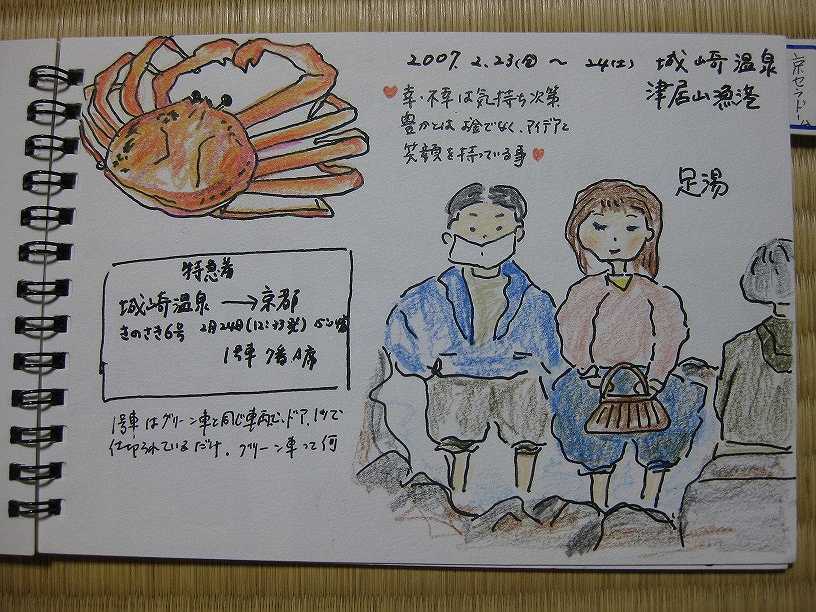 2007. 2.23(金) 〜 24(土) 城崎温泉
津居山漁港
幸・不幸は気持ち次第
豊かとはお金でなく、アイデアと
笑顔を持っている事
足湯
特急券
城崎温泉 → 京都
きのさき6号 2月24日(12:33発)
1号車 7番A席
1号車はグリーン車と同じ車両で、ドア1つで
仕切られているだけ。グリーン車って何
京セラドーム